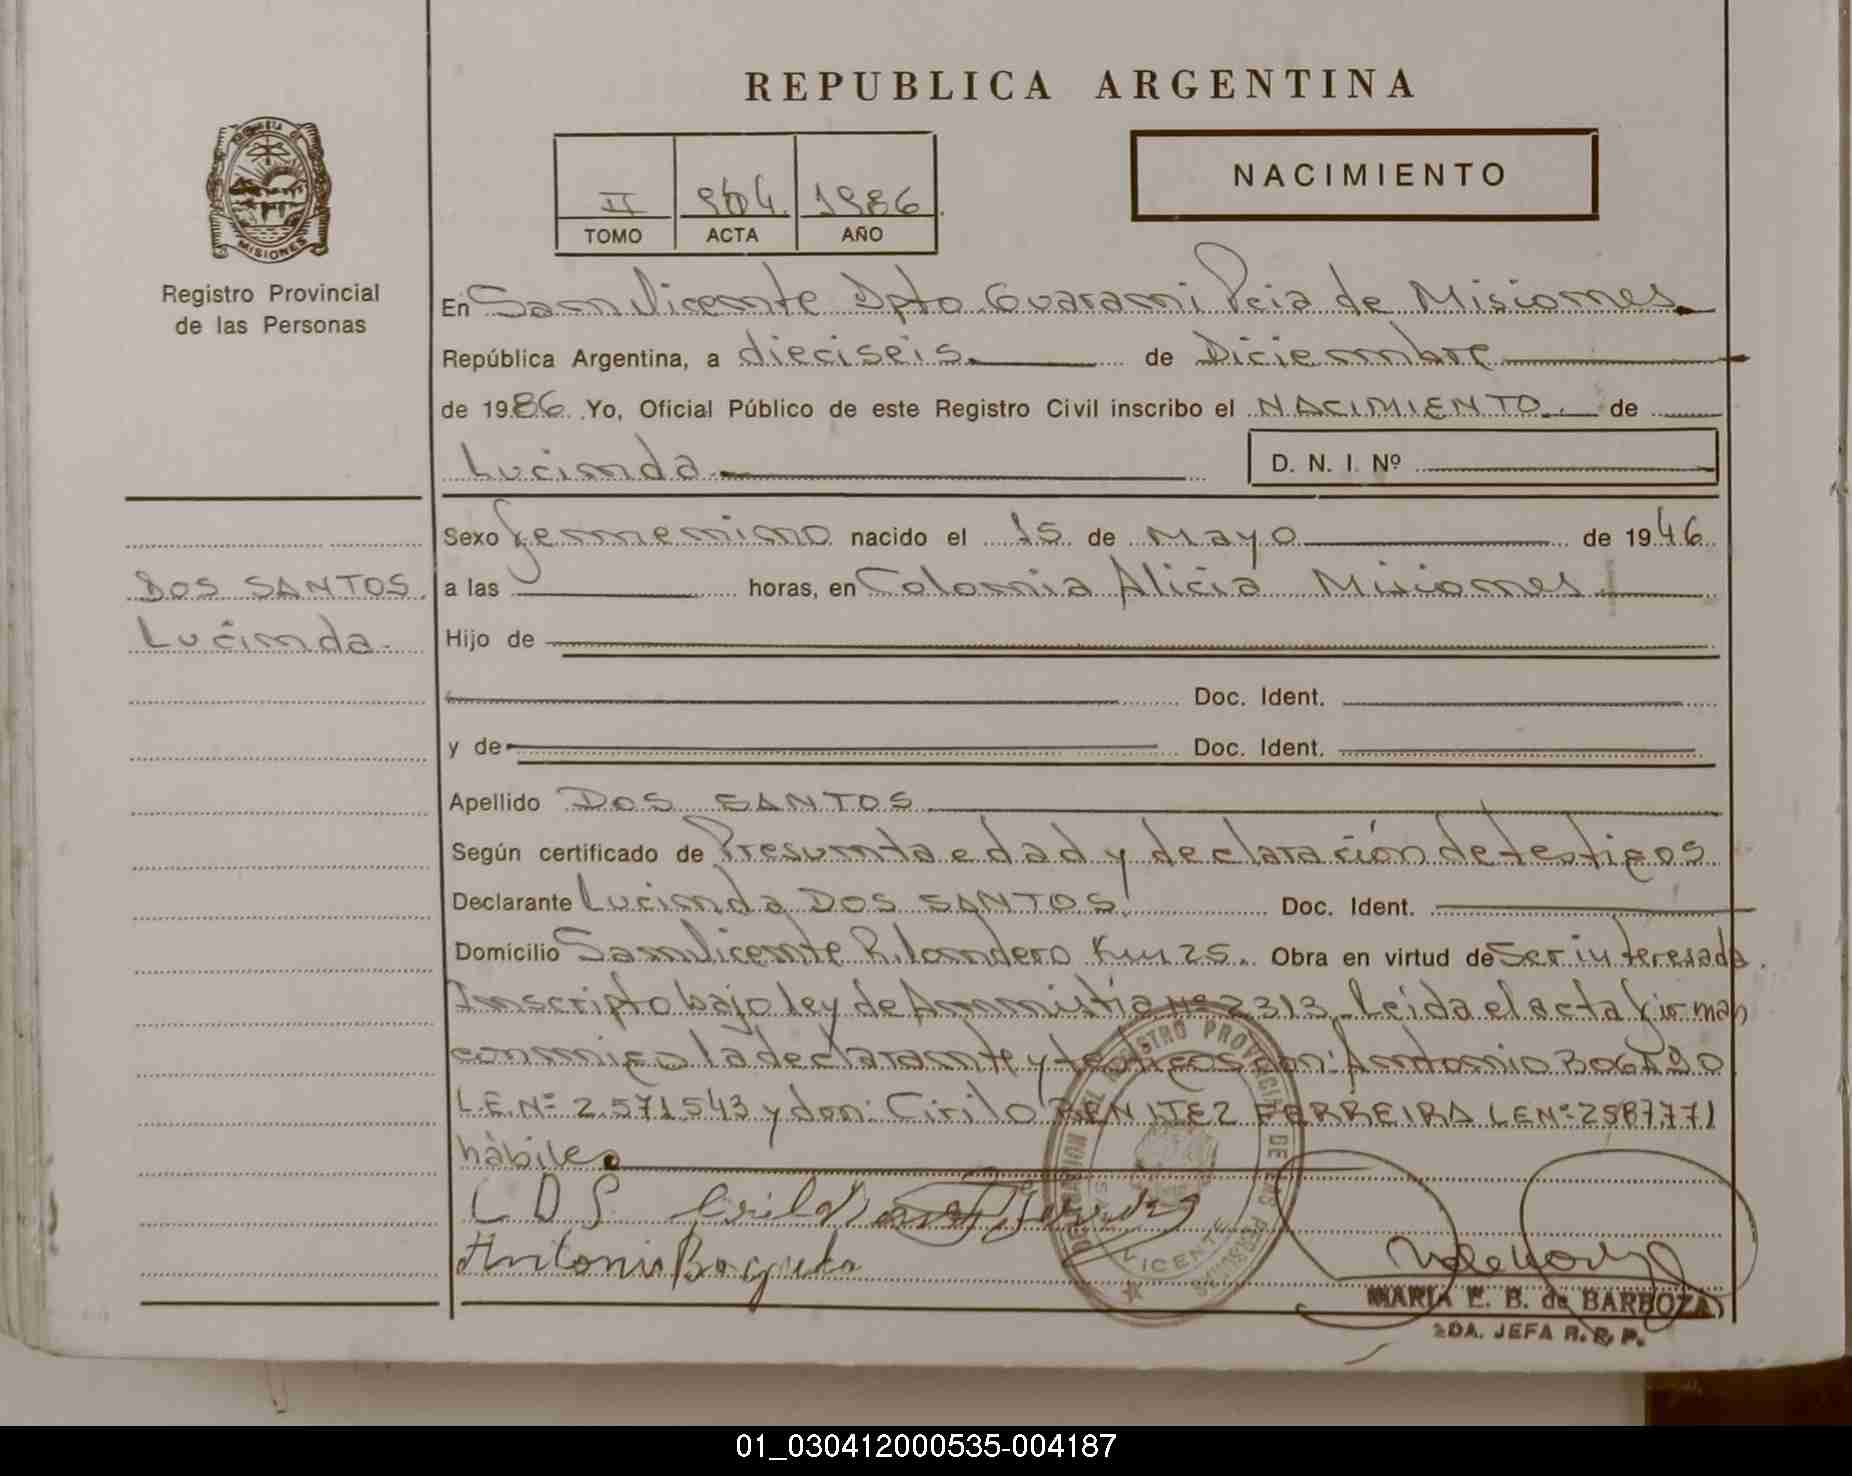 REPUBLICA ARGENTINA
NACIMIENTO
II 904 1986
TOMO ACTA AÑO
MISIONES
Registro Provincial
de las Personas
En San Vicente Dpto Guarani Pcia de Misiones
República Argentina, a dieciseis de Diciembre
de 1986 Yo, Oficial Público de este Registro Civil inscribo el NACIMIENTO de
Lucinda D. N. I. Nº
Sexo femenino nacido el 15 de Mayo de 1946
DOS SANTOS
Lucinda
a las horas, en Colonia Alicia Misiones
Hijo de
Doc. Ident.
y de Doc. Ident.
Apellido DOS SANTOS
Según certificado de Presunta edad y declaración de testigos
Declarante Lucinda DOS SANTOS Doc. Ident.
Domicilio San Vicente R. Londero Km 25. Obra en virtud de Ser interesada.
Inscripto bajo ley de Amnistia Nº 2313 Leída el acta firman
conmigo la declarante y testigos don: Antonio
L.E.Nº 2.571.543 y don: Cirilo BENITEZ FERREIRA LENº 2587.771
hábiles
L D S Cirilo
Antonio
MARIA E. B. de BARBOZA
2DA. JEFA R. P. P.
01_030412000535-004187